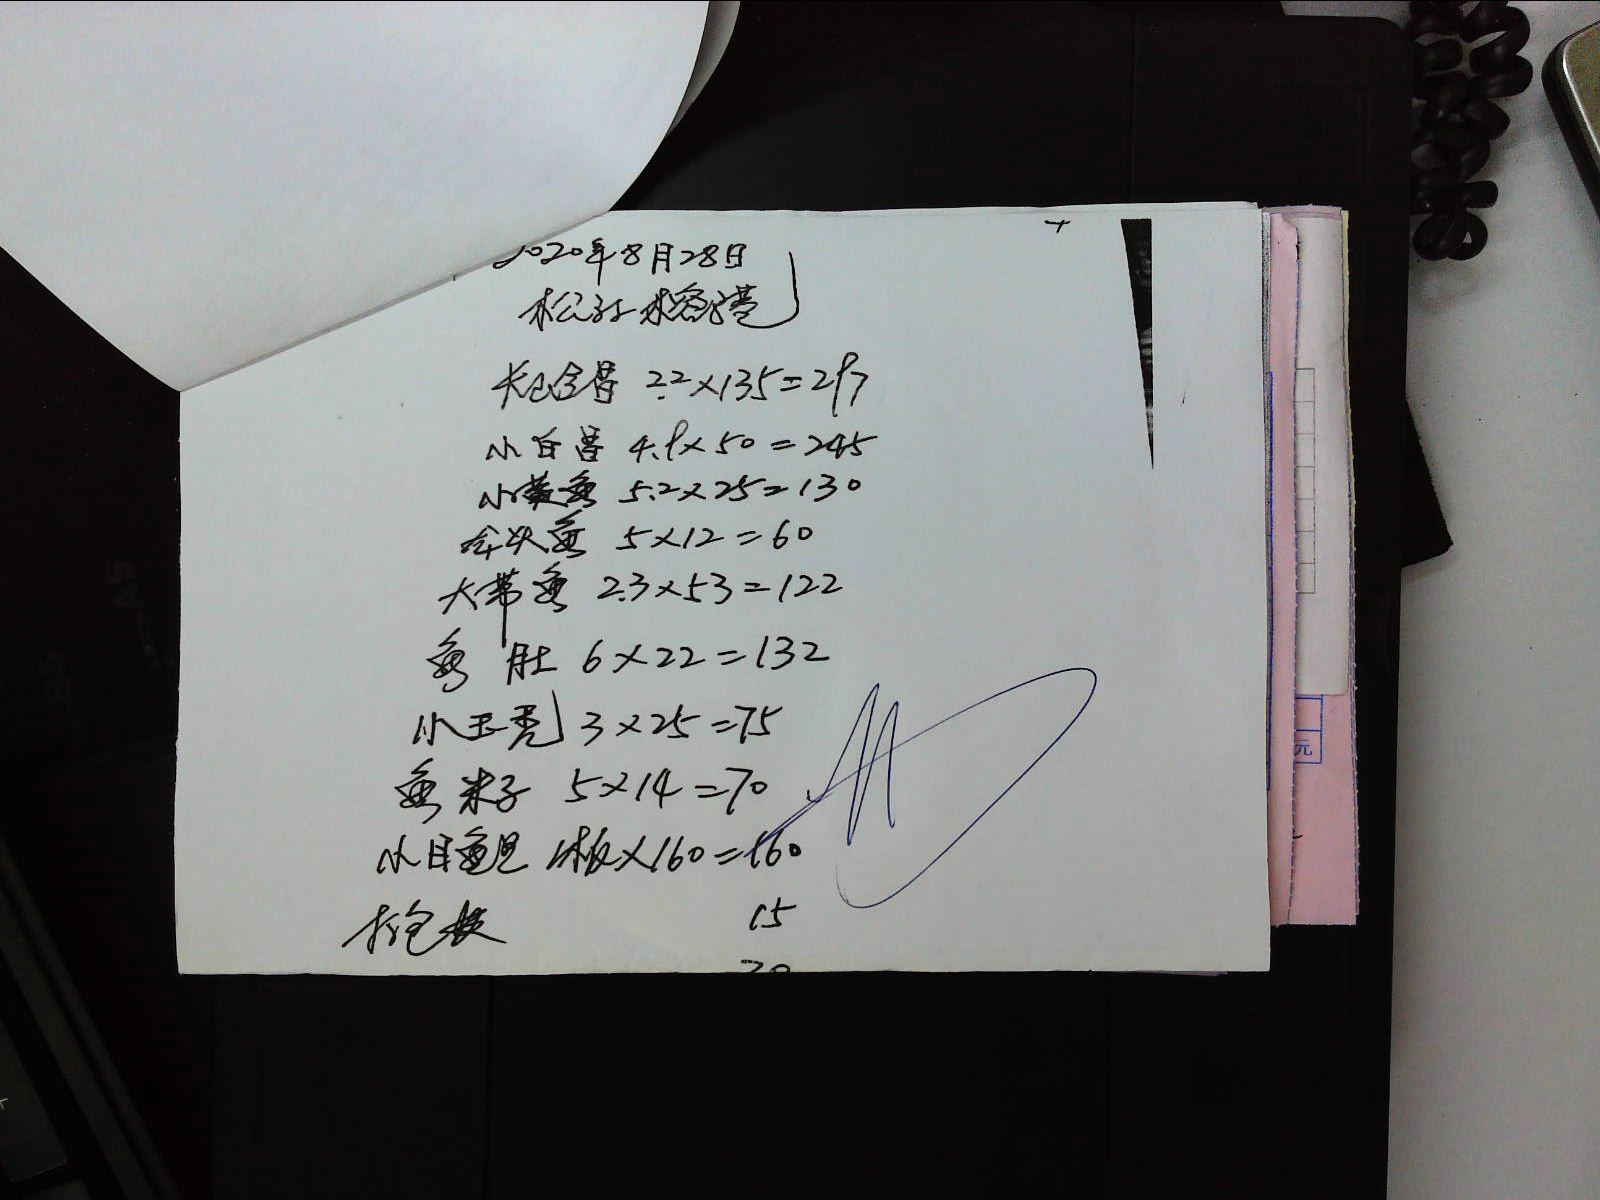 2020年8月28日
松江 榕港
2.2×135=297
小白 4.9×50=245
小黄鱼 5.2×25=130
鱼 5×12=60
大带鱼 2.3×53=122
鱼肚 6×22=132
小玉秃 3×25=75
鱼米子 5×14=70
小目鱼 1板×160=160
打包 15
元